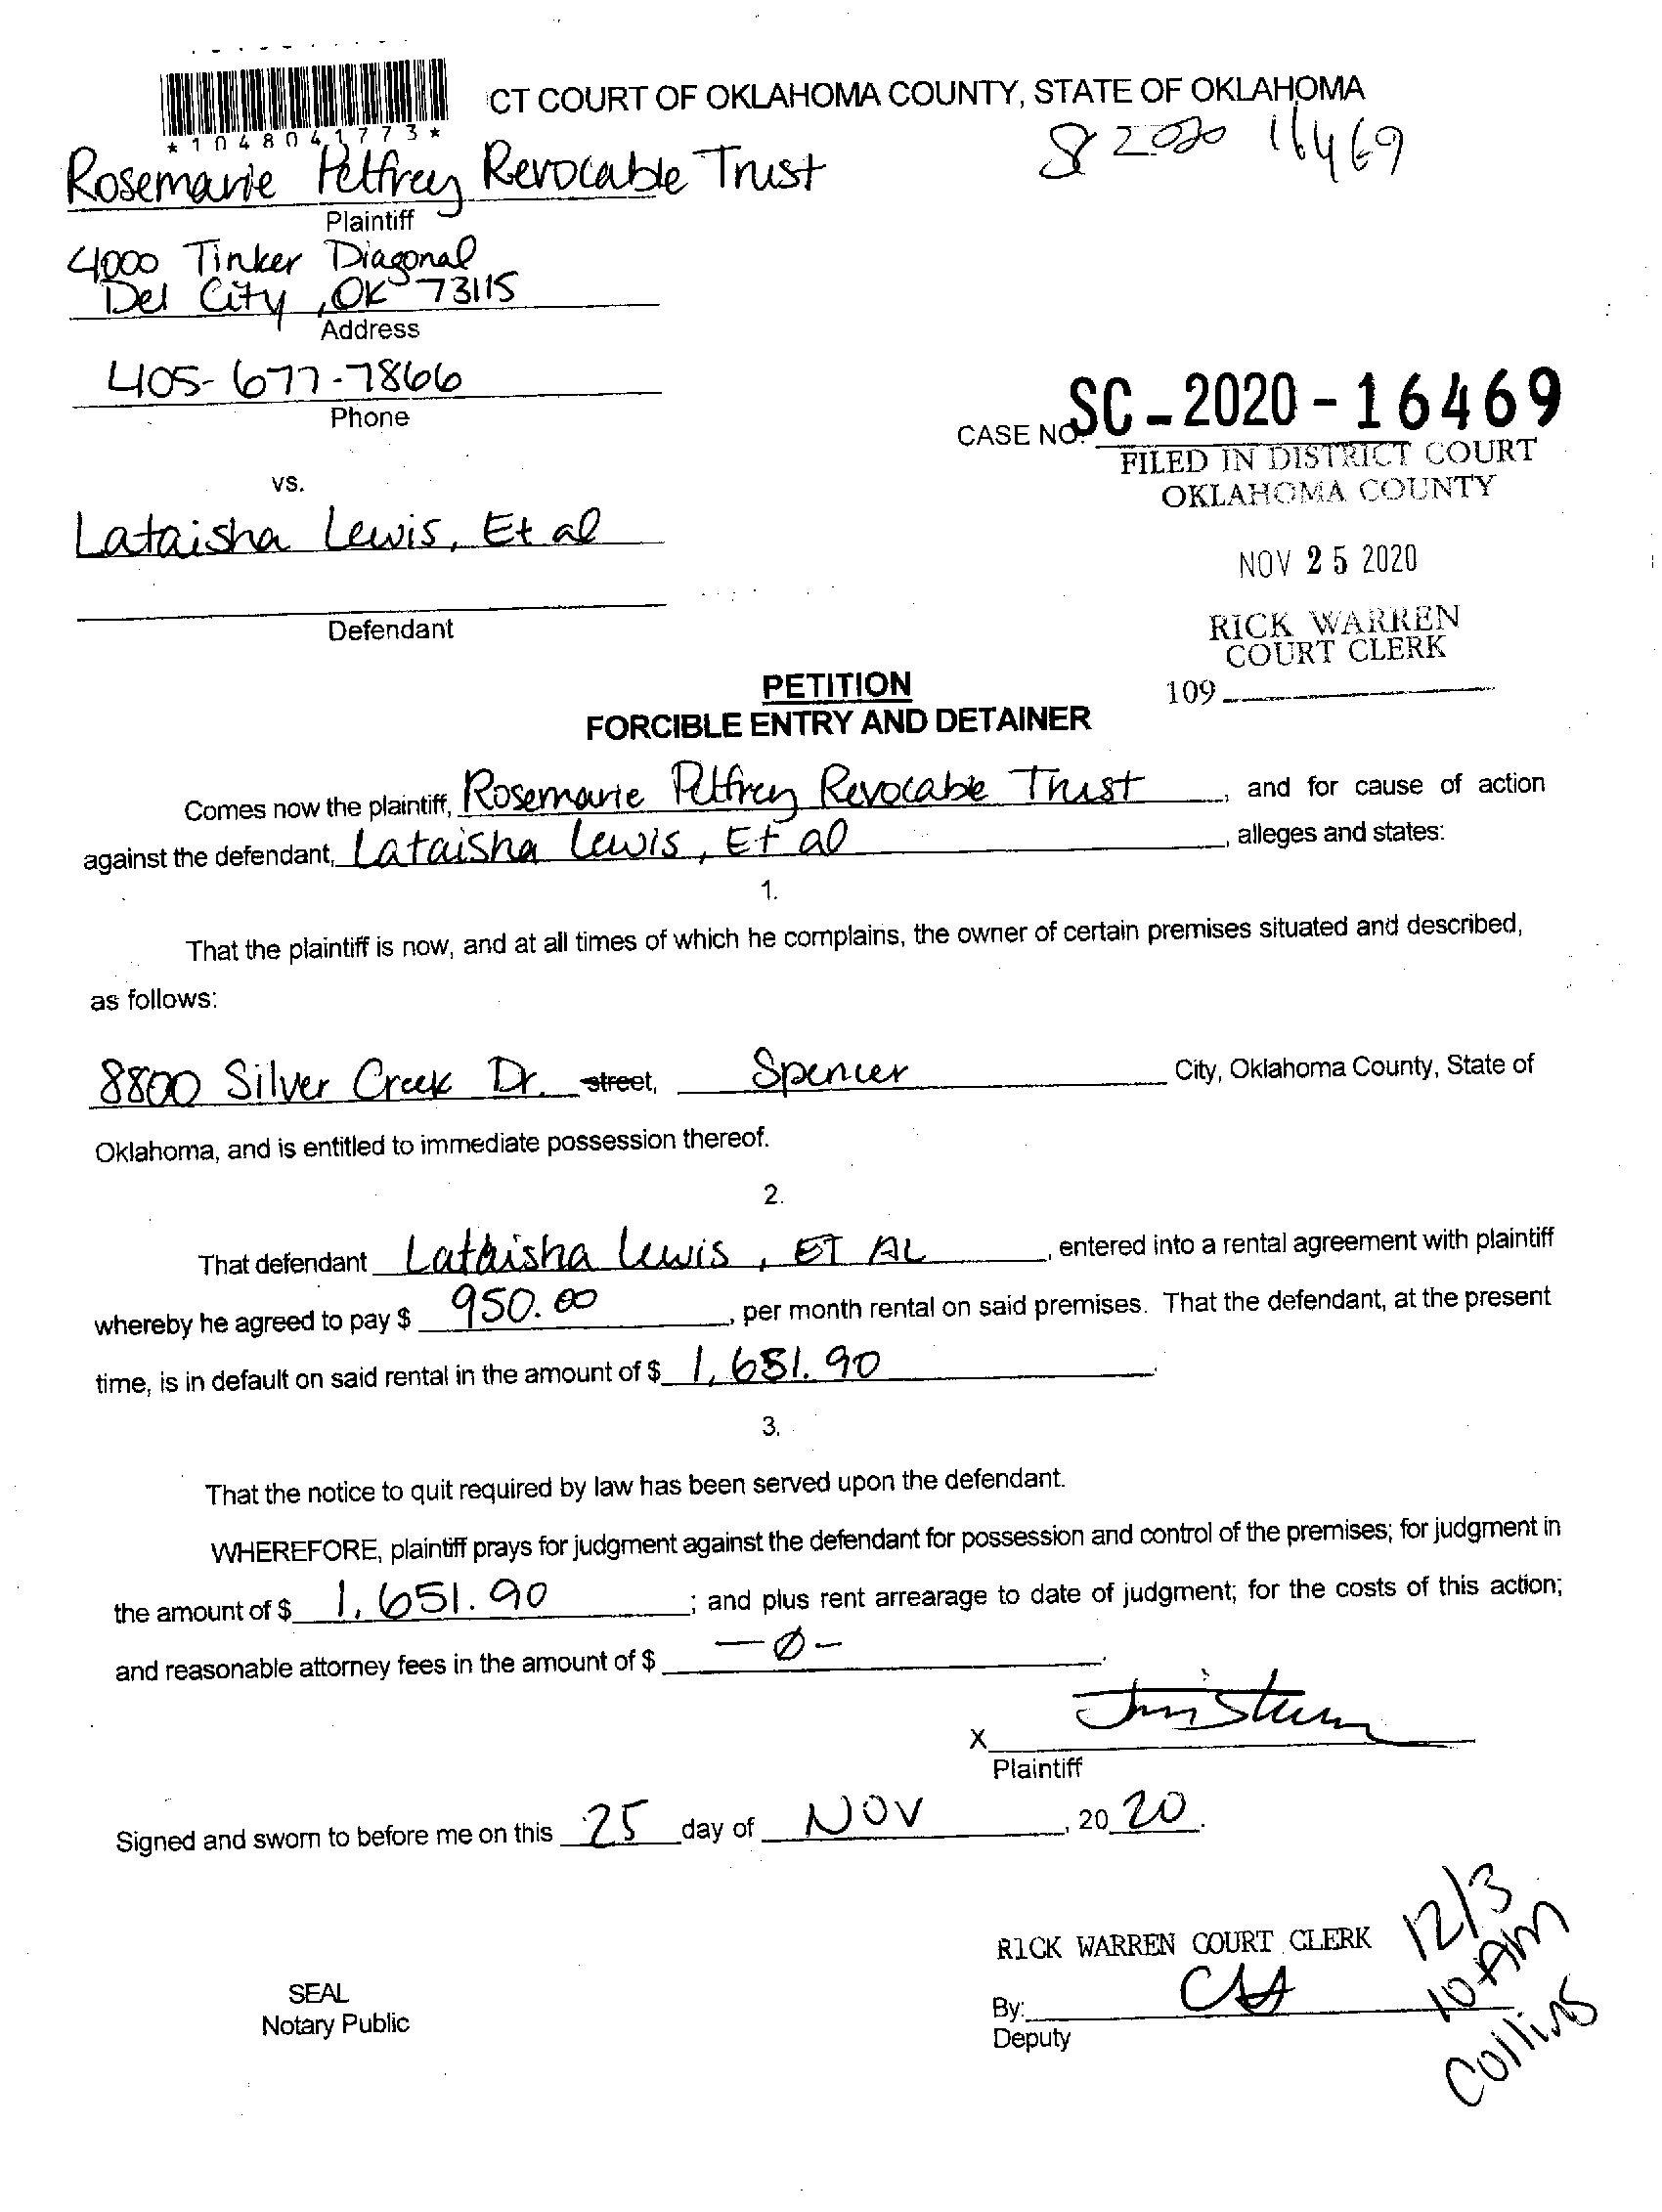 CT COURT OF OKLAHOMA COUNTY, STATE OF OKLAHOMA
*1048041773*
2020 16469
Rosemarie Pelfrey Revocable Trust
Plaintiff
4000 Tinker Diagonal
Del City, OK 73115
Address
405-677-7866
Phone
CASE NO. SC-2020-16469
FILED IN DISTRICT COURT
OKLAHOMA COUNTY
vs.
Lataisha Lewis, Et al
NOV 25 2020
Defendant
RICK WARREN
COURT CLERK
109
PETITION
FORCIBLE ENTRY AND DETAINER
Comes now the plaintiff, Rosemarie Pelfrey Revocable Trust, and for cause of action
against the defendant, Lataisha Lewis, Et al, alleges and states:
1.
That the plaintiff is now, and at all times of which he complains, the owner of certain premises situated and described,
as follows:
8800 Silver Creek Dr. street, Spencer City, Oklahoma County, State of
Oklahoma, and is entitled to immediate possession thereof.
2.
That defendant Lataisha Lewis, ET AL, entered into a rental agreement with plaintiff
whereby he agreed to pay $ 950.00, per month rental on said premises. That the defendant, at the present
time, is in default on said rental in the amount of $ 1,651.90.
3.
That the notice to quit required by law has been served upon the defendant.
WHEREFORE, plaintiff prays for judgment against the defendant for possession and control of the premises; for judgment in
the amount of $ 1,651.90; and plus rent arrearage to date of judgment; for the costs of this action;
and reasonable attorney fees in the amount of $ -0-.
X
Plaintiff
Signed and sworn to before me on this 25 day of NOV, 2020.
RICK WARREN COURT CLERK
12/3
10 AM
Collins
SEAL
Notary Public
By:
Deputy